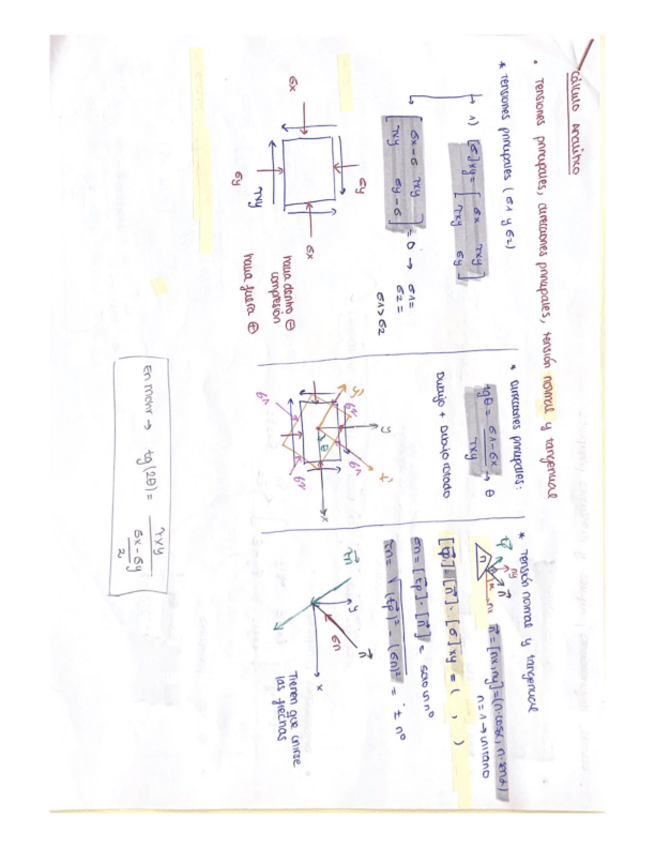 Cálculo analítico
• Tensiones principales, direcciones principales, tensión normal y tangencial
* Tensiones principales (σ1 y σ2)
1) [σ]xy = [ σx τxy
τxy σy ]
[ σx-σ τxy
τxy σy-σ ] = 0 → σ1=
σ2=
σ1>σ2
σx
σy
σy
τxy
σx
hacia dentro ⊖
compresión
hacia fuera ⊕
* Direcciones principales:
tgθ = σ1-σx / τxy → θ
Dibujo + Dibujo rotado
y
y'
x'
x
θ
* Tensión normal y tangencial
n⃗ = [nx, ny] = (n·cosα, n·senα)
n=1 → unitario
[t⃗p] = [n⃗]·[σ]xy = ( , )
σn = [t⃗p]·[n⃗] = solo un nº
τn = √(t⃗p)² - (σn)² = ± nº
τn
y
n⃗
σn
x
Tienen que unirse
las flechas
En Mohr → tg(2θ) = τxy / (σx-σy / 2)